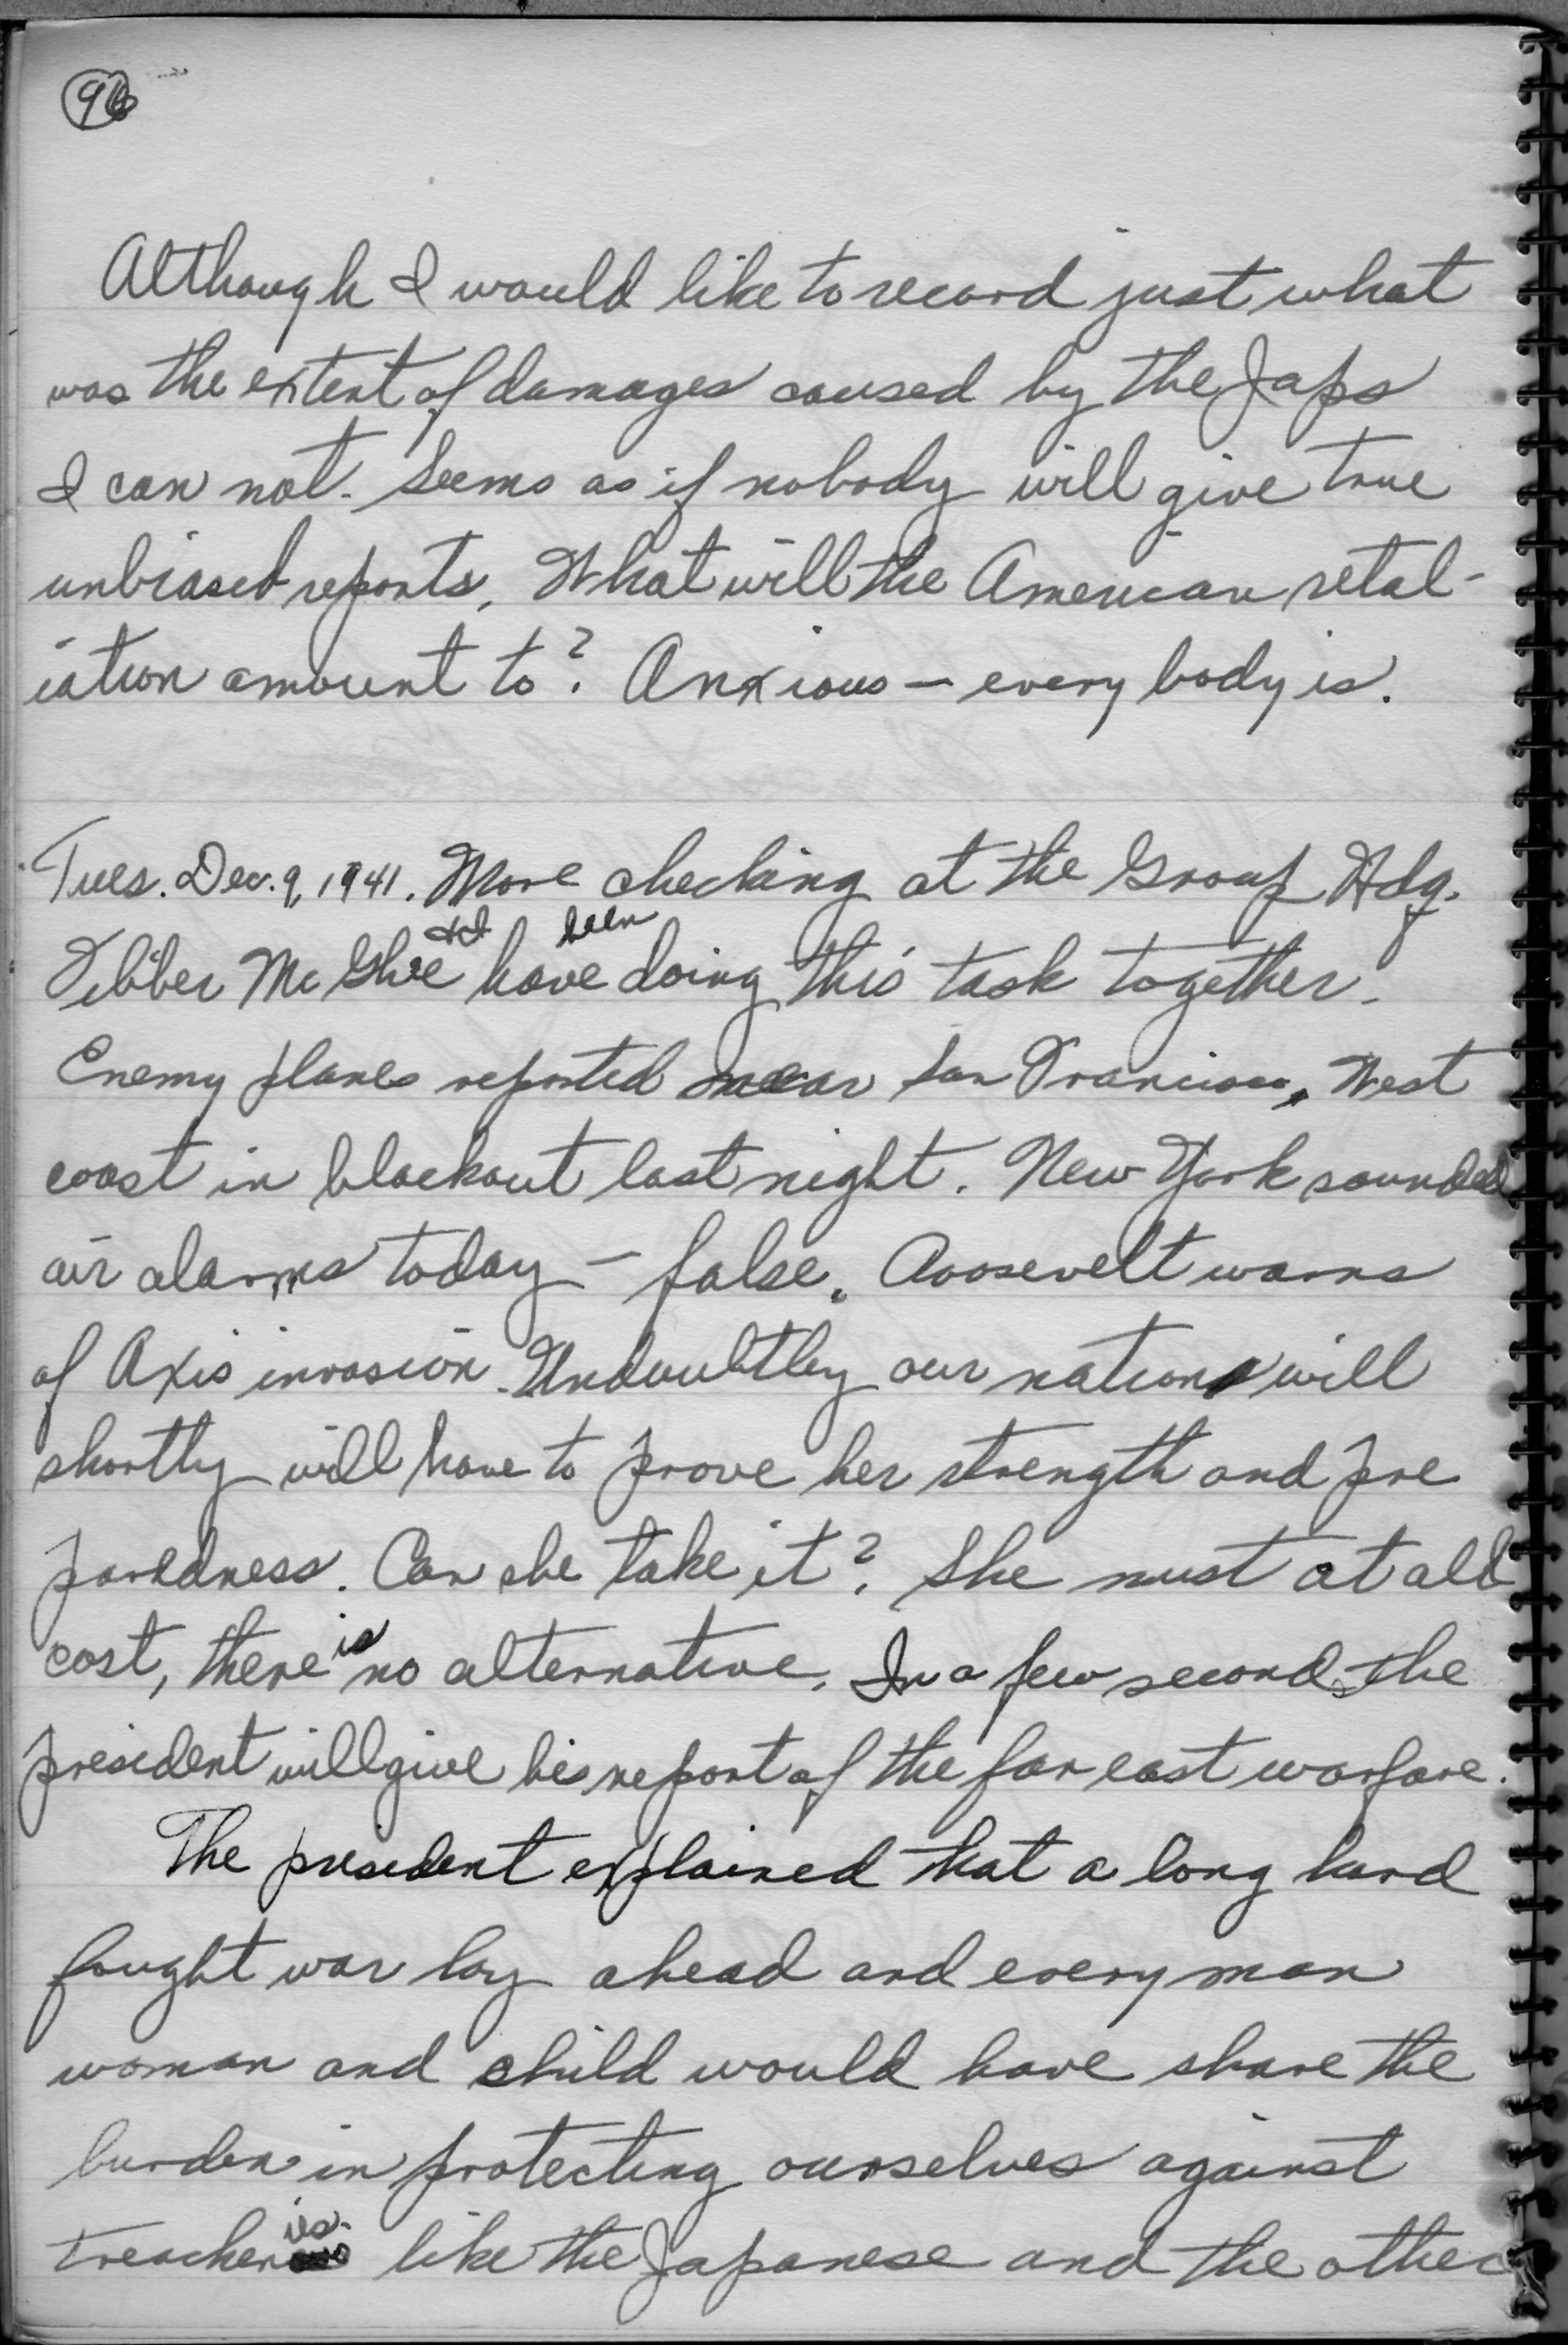 96
Although I would like to record just what
was the extent of damages caused by the Japs
I can not. Seems as if nobody will give true
unbiased reports. What will the American retal-
iation amount to? Anxious — every body is.
Tues. Dec. 9, 1941. More checking at the Group Hdq.
Fibber McGhee & I have been doing this task together.
Enemy planes reported near San Francisco, West
coast in blackout last night. New York sounded
air alarms today — false. Roosevelt warns
of Axis invasion. Undoubtley our nation will
shortly will have to prove her strength and pre
paredness. Can she take it? She must at all
cost, there is no alternative. In a few seconds the
president will give his report of the far east warfare.
The president explained that a long hard
fought war lay ahead and every man
woman and child would have share the
burden in protecting ourselves against
treacheries like the Japanese and the other